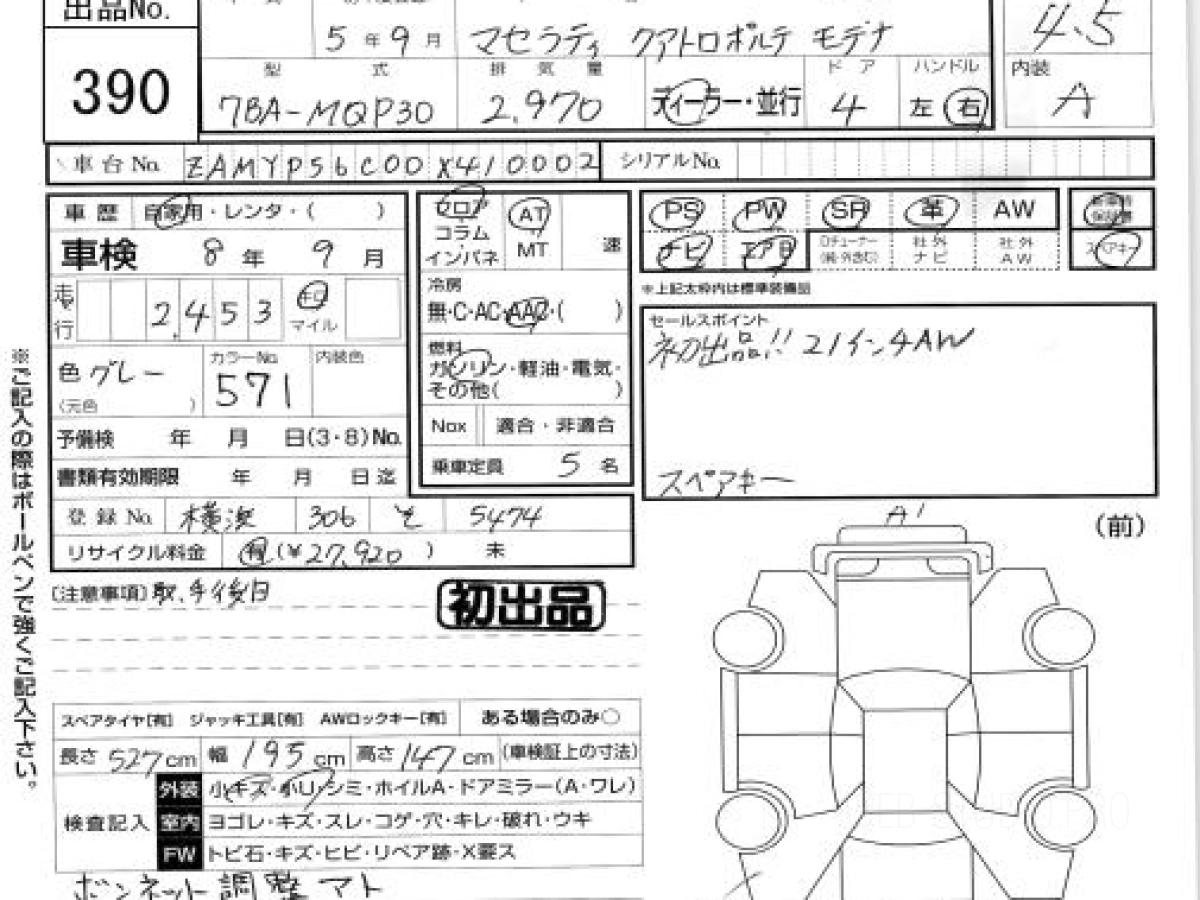 出品No.
390
5 年 9 月 マセラティ クアトロポルテ モデナ
4.5
型 式 排気量 ドア ハンドル
7BA-MQP30 2,970 ディーラー・並行 4 左 右
内装
A
車台No. ZAMYPS6C00X410002 シリアルNo.
車歴 自家用・レンタ・( )
車検 8 年 9 月
走行 2,453 キロ マイル
色 グレー カラーNo. 571 内装色
(元色 )
予備検 年 月 日(3・8)No.
書類有効期限 年 月 日迄
登録No. 横浜 306 そ 5474
リサイクル料金 有(¥27,920 ) 未
フロア
コラム
インパネ
AT
MT
速
冷房
無・C・AC・AAC・( )
燃料
ガソリン・軽油・電気・
その他( )
Nox 適合・非適合
乗車定員 5 名
PS PW SR 革 AW
ナビ エアB Dチューナー 社外ナビ 社外AW
新車時保証書
スペアキー
※上記太枠内は標準装備品
セールスポイント
初出品!! 21インチAW
スペアキー
[注意事項] 取、手イ後日
初出品
スペアタイヤ[有] ジャッキ工具[有] AWロックキー[有] ある場合のみ○
長さ 527cm 幅 195cm 高さ 147cm (車検証上の寸法)
検査記入
外装 小キズ・小U・シミ・ホイルA・ドアミラー(A・ワレ)
室内 ヨゴレ・キズ・スレ・コゲ・穴・キレ・破れ・ウキ
FW トビ石・キズ・ヒビ・リペア跡・X要ス
ボンネット調整マト
A1
(前)
※ご記入の際はボールペンで強くご記入下さい。